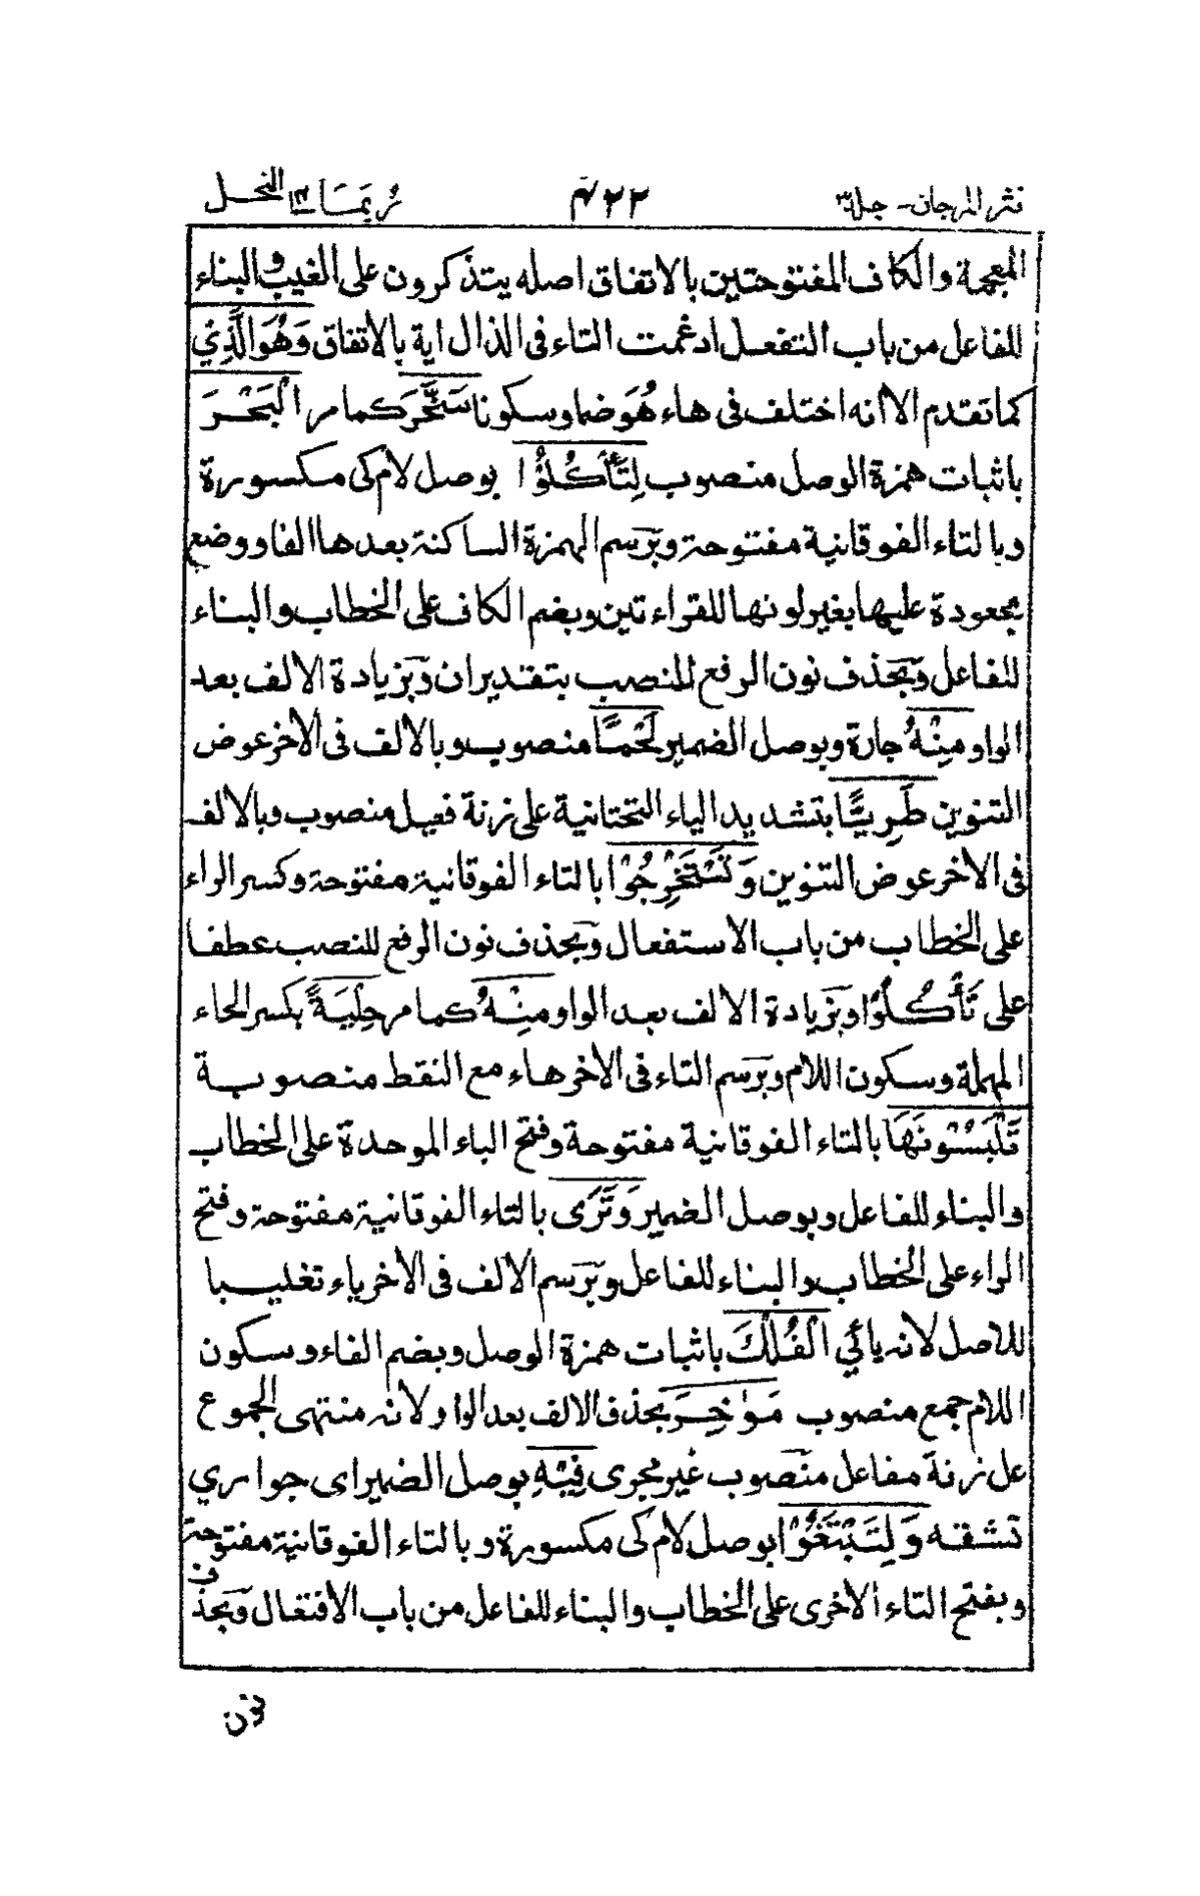 نثر المرجان - جلد ٣ ٤٢٢ ربما ١٤ النحل
المعجمة والكاف المفتوحتين بالاتفاق اصله يتذكرون على الغيب والبناء
للفاعل من باب التفعل ادغمت التاء فى الذال اية بالاتفاق وَهُوَ الَّذِي
كما تقدم الا انه اختلف فى هاء هُوَ ضما وسكونا سَخَّرَ كما مر الْبَحْرَ
باثبات همزة الوصل منصوب لِتَأْكُلُوْا بوصل لام كى مكسورة
وبالتاء الفوقانية مفتوحة وبرسم الهمزة الساكنة بعدها الفا ووضع
مجعودة عليها بغير لونها للقراءتين وبضم الكاف على الخطاب والبناء
للفاعل وبحذف نون الرفع للنصب بتقدير ان وبزيادة الالف بعد
الواو مِنْهُ جارة وبوصل الضمير لَحْمًا منصوب وبالالف فى الاخر عوض
التنوين طَرِيًّا بتشديد الياء التحتانية على زنة فعيل منصوب وبالالف
فى الاخر عوض التنوين وَتَسْتَخْرِجُوْا بالتاء الفوقانية مفتوحة وكسر الراء
على الخطاب من باب الاستفعال وبحذف نون الرفع للنصب عطفا
على تَأْكُلُوْا وبزيادة الالف بعد الواو مِنْهُ كما مر حِلْيَةً بكسر الحاء
المهملة وسكون اللام وبرسم التاء فى الاخر هاء مع النقط منصوبة
تَلْبَسُوْنَهَا بالتاء الفوقانية مفتوحة وفتح الباء الموحدة على الخطاب
والبناء للفاعل وبوصل الضمير وَتَرَى بالتاء الفوقانية مفتوحة وفتح
الراء على الخطاب والبناء للفاعل وبرسم الالف فى الاخر ياء تغليبا
للاصل لانه يائي الْفُلْكَ باثبات همزة الوصل وبضم الفاء وسكون
اللام جمع منصوب مَوٰخِرَ بحذف الالف بعد الواو لانه منتهى الجموع
على زنة مفاعل منصوب غير مجرى فِيْهِ بوصل الضمير اى جوارى
تشقه وَلِتَبْتَغُوْا بوصل لام كى مكسورة وبالتاء الفوقانية مفتوحة
وبفتح التاء الاخرى على الخطاب والبناء للفاعل من باب الافتعال وبحذف
نون